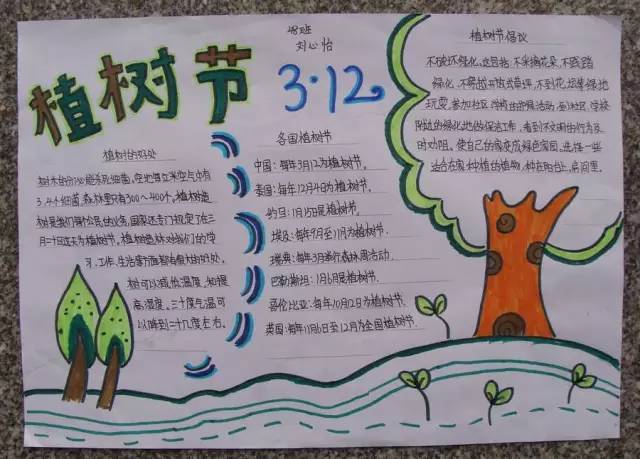 植树节
3·12
刘心怡
植树的好处
树木的分泌能杀死细菌,空地每立米空气中有
3、4个细菌,森林里只有300～400个,植树造
树是我们每个公民的义务,国家还专门规定了在三
月十二日这天为植树节,植树造林对我们的学
习、工作、生活等方面都有很大的好处。
树可以减低温度,和提
高湿度。三十度气温可
以降到二十几度左右。
各国植树节
中国:每年3月12为植树节。
泰国:每年12月4日为植树节。
约旦:1月15日是植树节。
埃及:每年9月至11月为植树节。
瑞典:每年3月举行森林周活动。
巴勒斯坦:1月6日是植树节
哥伦比亚:每年10月2日为植树节.
英国:每年11月6日至12月为全国植树节.
植树节倡议
不破坏绿化,这包括:不采摘花朵,不践踏
绿化,不翻越开放式草坪,不到花坛等绿地
玩耍,参加社区、学校的护绿活动,到社区、学校
附近的绿化地做保洁工作,看到不文明的行为及
时劝阻。使自己的家变成绿色家园,选择一些
适合在家种植的植物,种在阳台上、房间里。